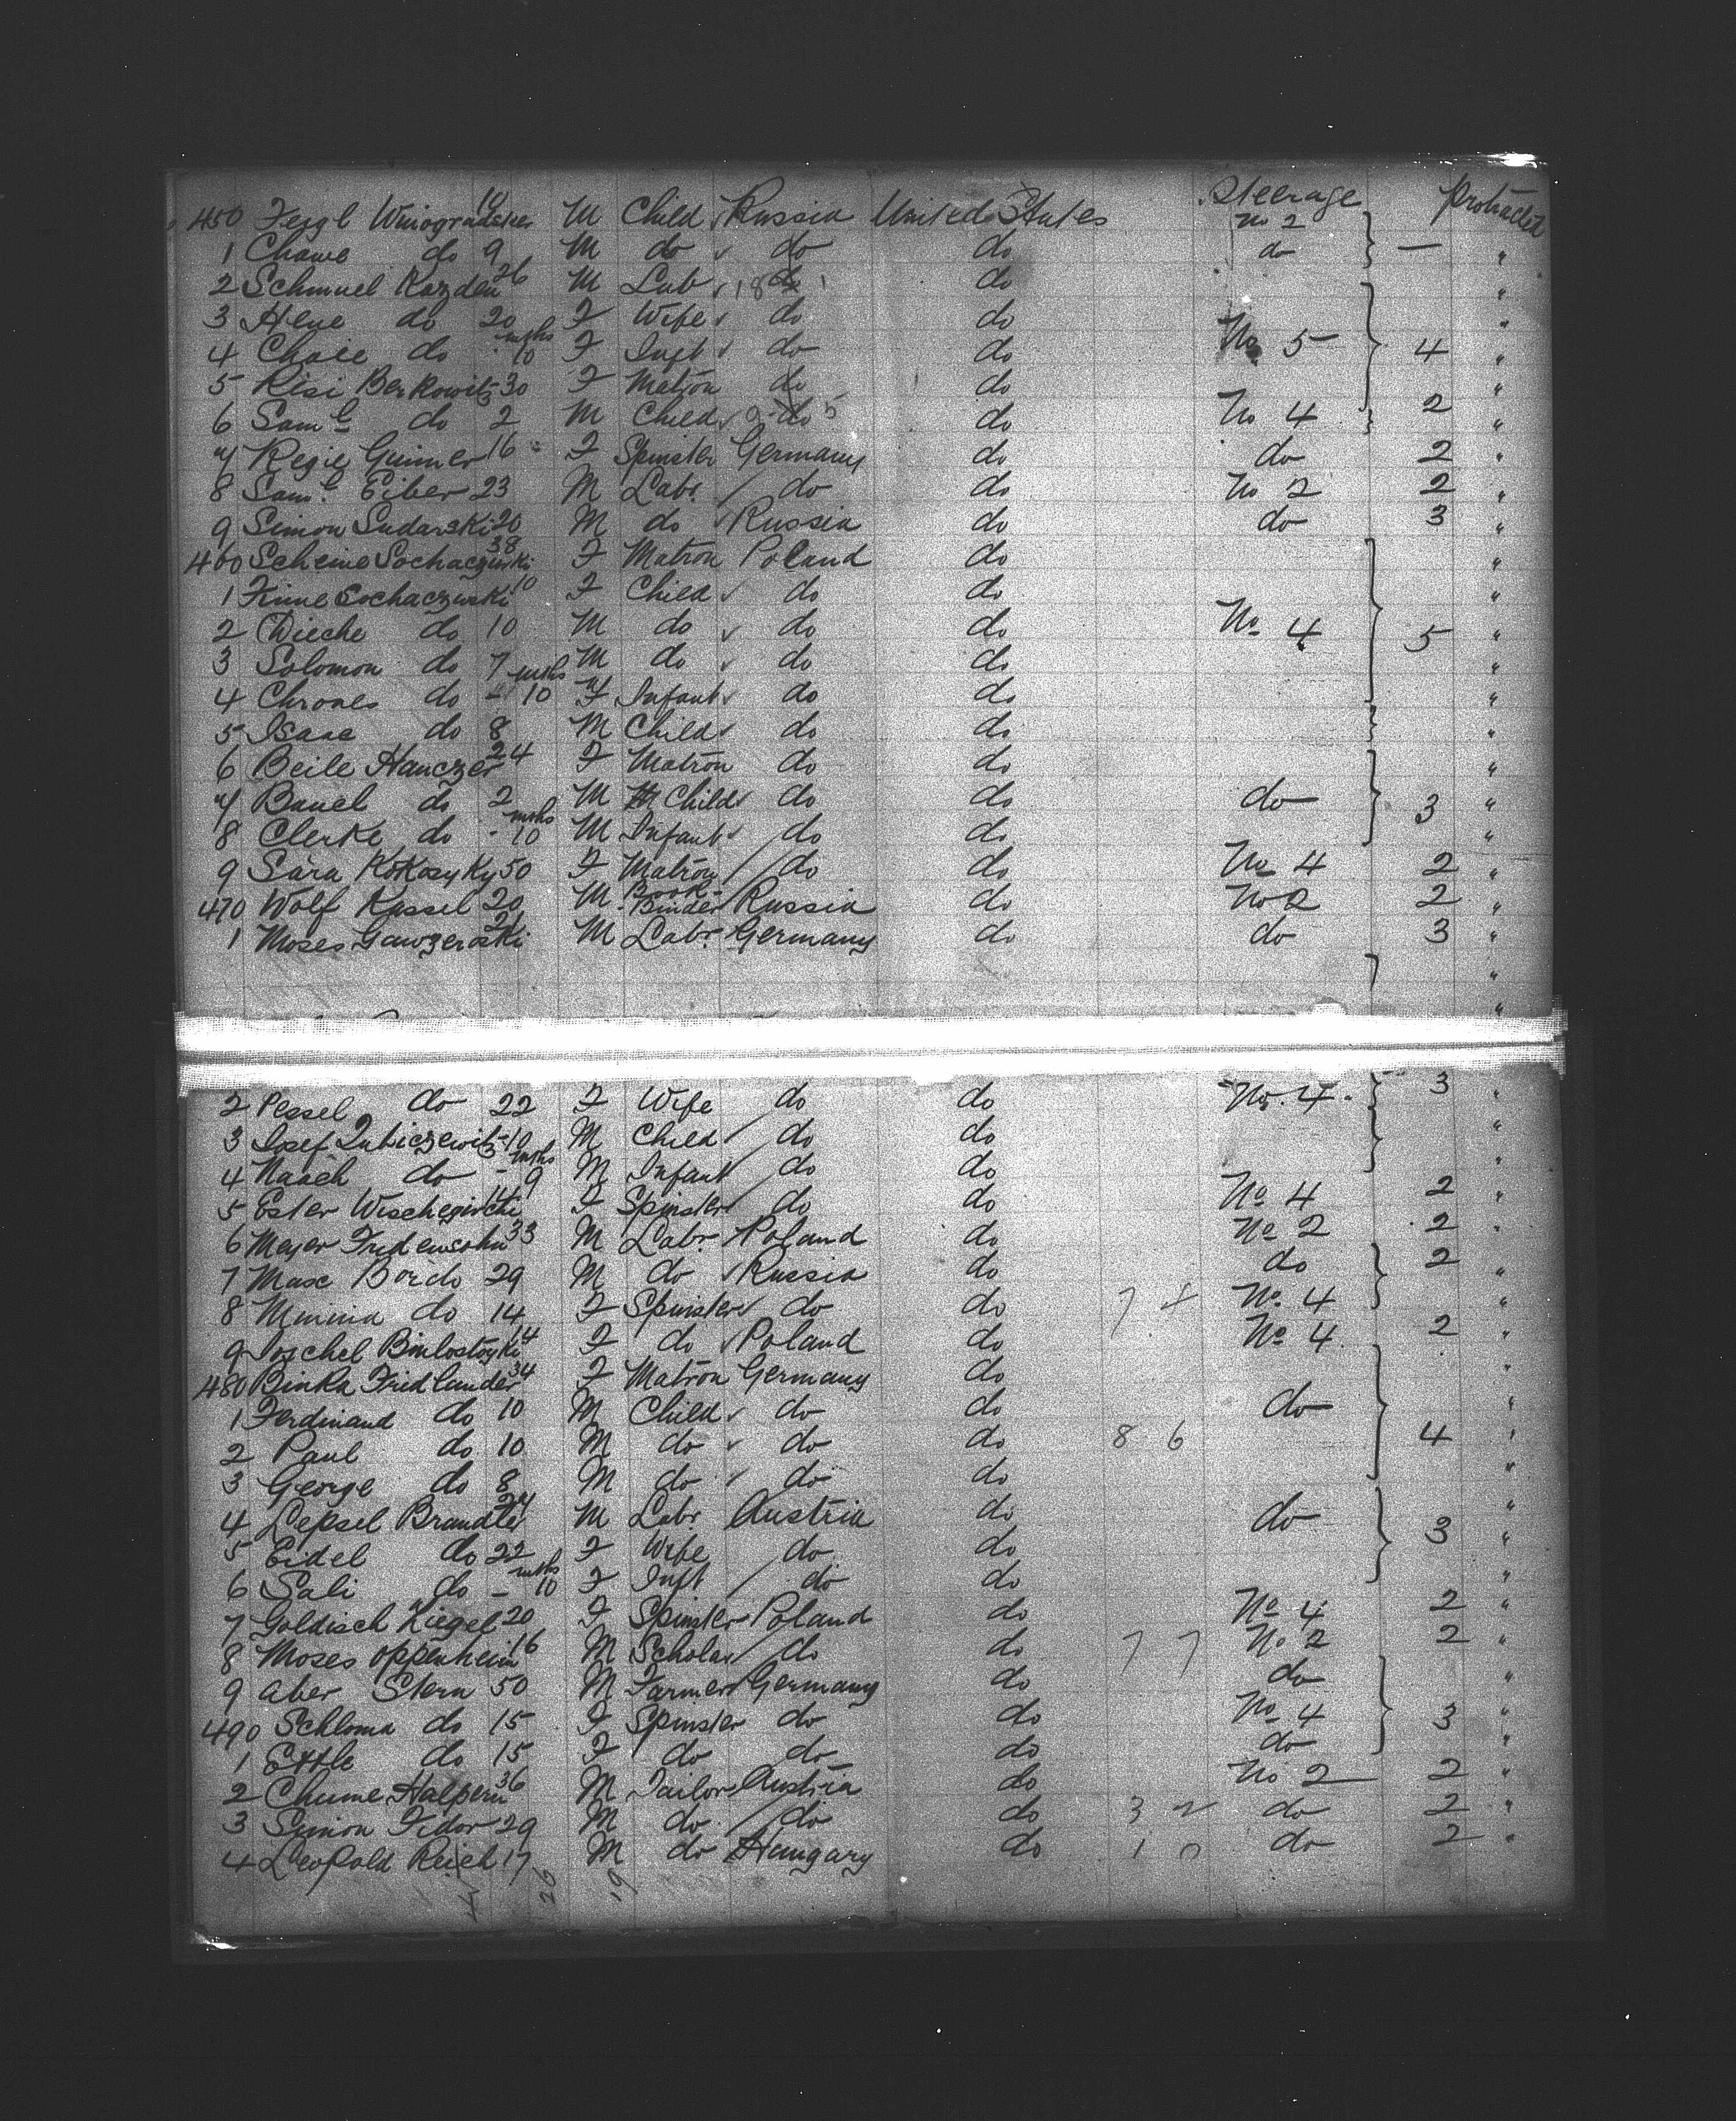 450 Feygl Winogradsker 10 M Child Russia United States Steerage No 2 Protracted
1 Chawe do 9 M do do do do — "
2 Schmuel Kazden 26 M Lab 18 do 1 do "
3 Hene do 20 F Wife do do "
4 Chaie do - mths 10 F Inft do do No 5 4 "
5 Risi Berkowitz 30 F Matron do do "
6 Saml do 2 M Child do 5 do No 4 2 "
7 Regie 16 F Spinster Germany do do 2 "
8 Saml Eiber 23 M Labr do do No 2 2 "
9 Simon Sudarski 20 M do Russia do do 3 "
460 Scheine Sochaczewski 38 F Matron Poland do "
1 Finne Sochaczewski 10 F Child do do "
2 Wieche do 10 M do do do No 4 5 "
3 Solomon do 7 M do do do "
4 Chrones do - mths 10 F Infant do do "
5 Isaac do 8 M Child do do "
6 Beile Hanczer 24 F Matron do do "
7 Bauel do 2 M Child do do do 3 "
8 Clerke do - mths 10 M Infant do do "
9 Sara 50 F Matron do do No 4 2 "
470 Wolf Kassel 20 M Book-Binder Russia do No 2 2 "
1 Moses 21 M Labr Germany do do 3 "
2 Pessel do 22 F Wife do do No. 4. 3 "
3 Josef 10 M Child do do "
4 Naach do - mths 9 M Infant do do "
5 Ester 14 F Spinster do do No 4 2 "
6 Meyer Fridensohn 33 M Labr Poland do No 2 2 "
7 Max Bordo 29 M do Russia do do 2 "
8 Minina do 14 F Spinster do do 7 8 No. 4 "
9 Joschel 14 F do Poland do No. 4 2 "
480 Binka Fridlander 34 F Matron Germany do "
1 Ferdinand do 10 M Child do do do "
2 Paul do 10 M do do do 8 6 4 "
3 George do 8 M do do do "
4 Lepsel Brandler 24 M Labr Austria do do "
5 Eidel do 22 F Wife do do 3 "
6 Sali do - mths 10 F Inft do do "
7 Goldisch Kiegel 20 F Spinster Poland do No 4 2 "
8 Moses Oppenheim 16 M Scholar do do 7 7 No 2 2 "
9 Aber Stern 50 M Farmer Germany do do "
490 Schloma do 15 F Spinster do do No 4 3 "
1 Ettle do 15 F do do do do "
2 Chume Halpern 36 M Tailor Austria do No 2 2 "
3 Simon Fedor 29 M do do do 3 2 do 2 "
4 Leopold Reich 17 M do Hungary do 1 0 do 2 "
20 19